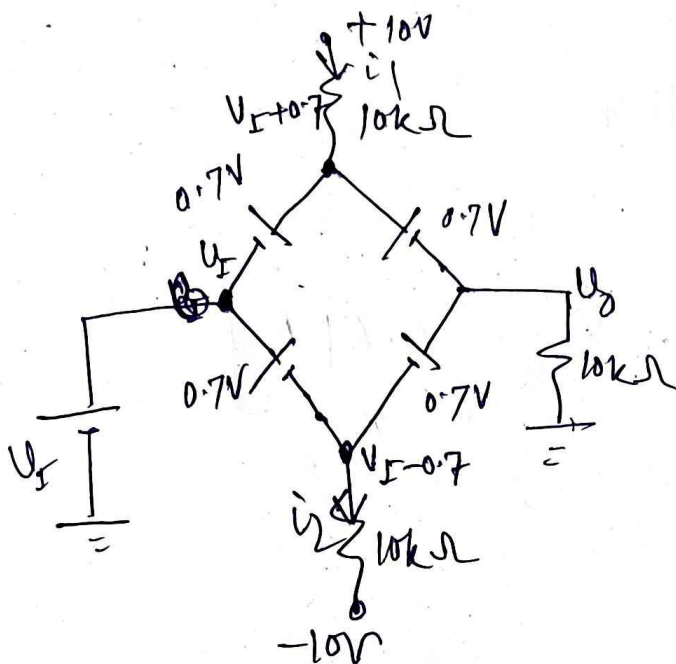 +10V
i1
VI+0.7
10kΩ
0.7V
0.7V
VI
Vo
10kΩ
0.7V
0.7V
VI
VI-0.7
i2
10kΩ
-10V